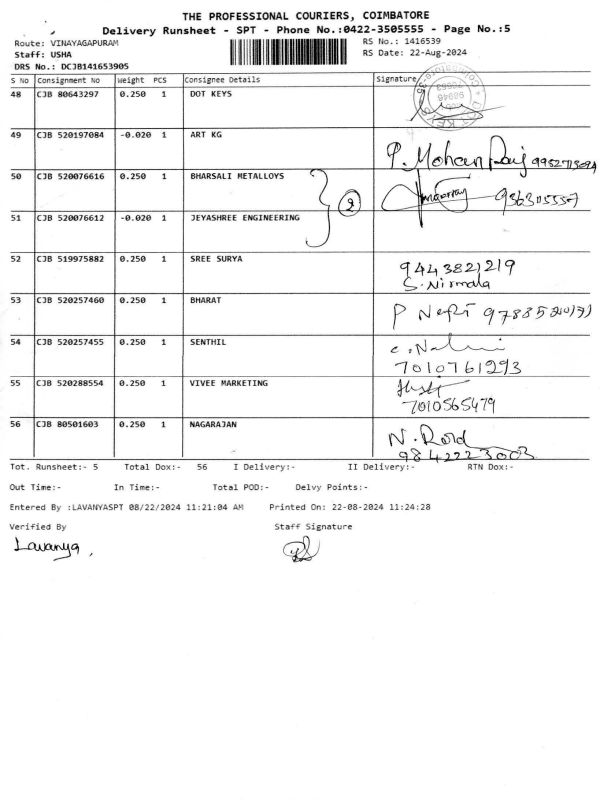 THE PROFESSIONAL COURIERS, COIMBATORE
Delivery Runsheet - SPT - Phone No.:0422-3505555 - Page No.:5
Route: VINAYAGAPURAM
RS No.: 1416539
Staff: USHA
RS Date: 22-Aug-2024
DRS No.: DCJB141653905
S No Consignment No Weight PCS Consignee Details Signature
48 CJB 80643297 0.250 1 DOT KEYS
49 CJB 520197084 -0.020 1 ART KG
P. Mohan Raj
50 CJB 520076616 0.250 1 BHARSALI METALLOYS
2
51 CJB 520076612 -0.020 1 JEYASHREE ENGINEERING
52 CJB 519975882 0.250 1 SREE SURYA
9443821219
S. Nirmala
53 CJB 520257460 0.250 1 BHARAT
P
54 CJB 520257455 0.250 1 SENTHIL
7010761293
55 CJB 520288554 0.250 1 VIVEE MARKETING
7010565479
56 CJB 80501603 0.250 1 NAGARAJAN
N.
9842223003
Tot. Runsheet:- 5 Total Dox:- 56 I Delivery:- II Delivery:- RTN Dox:-
Out Time:- In Time:- Total POD:- Delvy Points:-
Entered By :LAVANYASPT 08/22/2024 11:21:04 AM Printed On: 22-08-2024 11:24:28
Verified By Staff Signature
Lavanya,